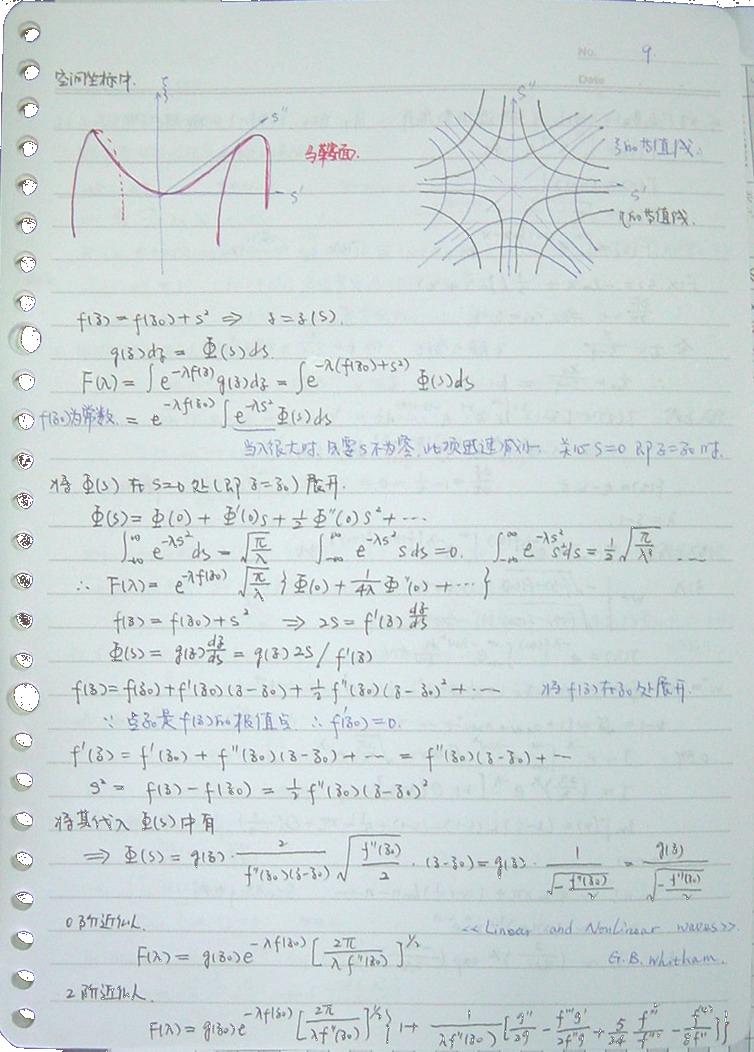 No. 9
Date
空间坐标中.
ξ
S''
S'
马鞍面.
S''
ξ的等值线.
S'
η的等值线.
f(z) = f(z0) + s² ⇒ z = z(s).
g(z)dz = Φ(s)ds.
F(λ) = ∫ e^{-λf(z)} g(z)dz = ∫ e^{-λ(f(z0)+s²)} Φ(s)ds
f(z0)为常数. = e^{-λf(z0)} ∫ e^{-λs²} Φ(s)ds
当λ很大时, 只要S不为零, 此项迅速减小. 关心S=0 即z=z0时.
将 Φ(s) 在 s=0 处(即 z=z0)展开.
Φ(s) = Φ(0) + Φ'(0)s + ½Φ''(0)s² + ⋯
∫_{-∞}^{∞} e^{-λs²}ds = √(π/λ) ∫_{-∞}^{∞} e^{-λs²} s ds = 0. ∫_{-∞}^{∞} e^{-λs²} s²ds = ½√(π/λ³) ⋯
∴ F(λ) = e^{-λf(z0)} √(π/λ) { Φ(0) + 1/(4λ) Φ''(0) + ⋯ }
f(z) = f(z0) + s² ⇒ 2s = f'(z) dz/ds
Φ(s) = g(z) dz/ds = g(z) 2s / f'(z)
f(z) = f(z0) + f'(z0)(z-z0) + ½ f''(z0)(z-z0)² + ⋯ 将f(z)在z0处展开.
∵ 点z0是f(z)的极值点. ∴ f'(z0) = 0.
f'(z) = f'(z0) + f''(z0)(z-z0) + ⋯ = f''(z0)(z-z0) + ⋯
s² = f(z) - f(z0) = ½ f''(z0)(z-z0)²
将其代入 Φ(s) 中有
⇒ Φ(s) = g(z) · 2/(f''(z0)(z-z0)) √(f''(z0)/2) · (z-z0) = g(z) · 1/√(-f''(z0)/2) = g(z)/√(-f''(z0)/2)
0阶近似. << Linear and NonLinear waves >>.
F(λ) = g(z0) e^{-λf(z0)} [2π/(λf''(z0))]^{1/2} G.B. Whitham.
2阶近似.
F(λ) = g(z0) e^{-λf(z0)} [2π/(λf''(z0))]^{1/2} { 1 + 1/(λf''(z0)) [